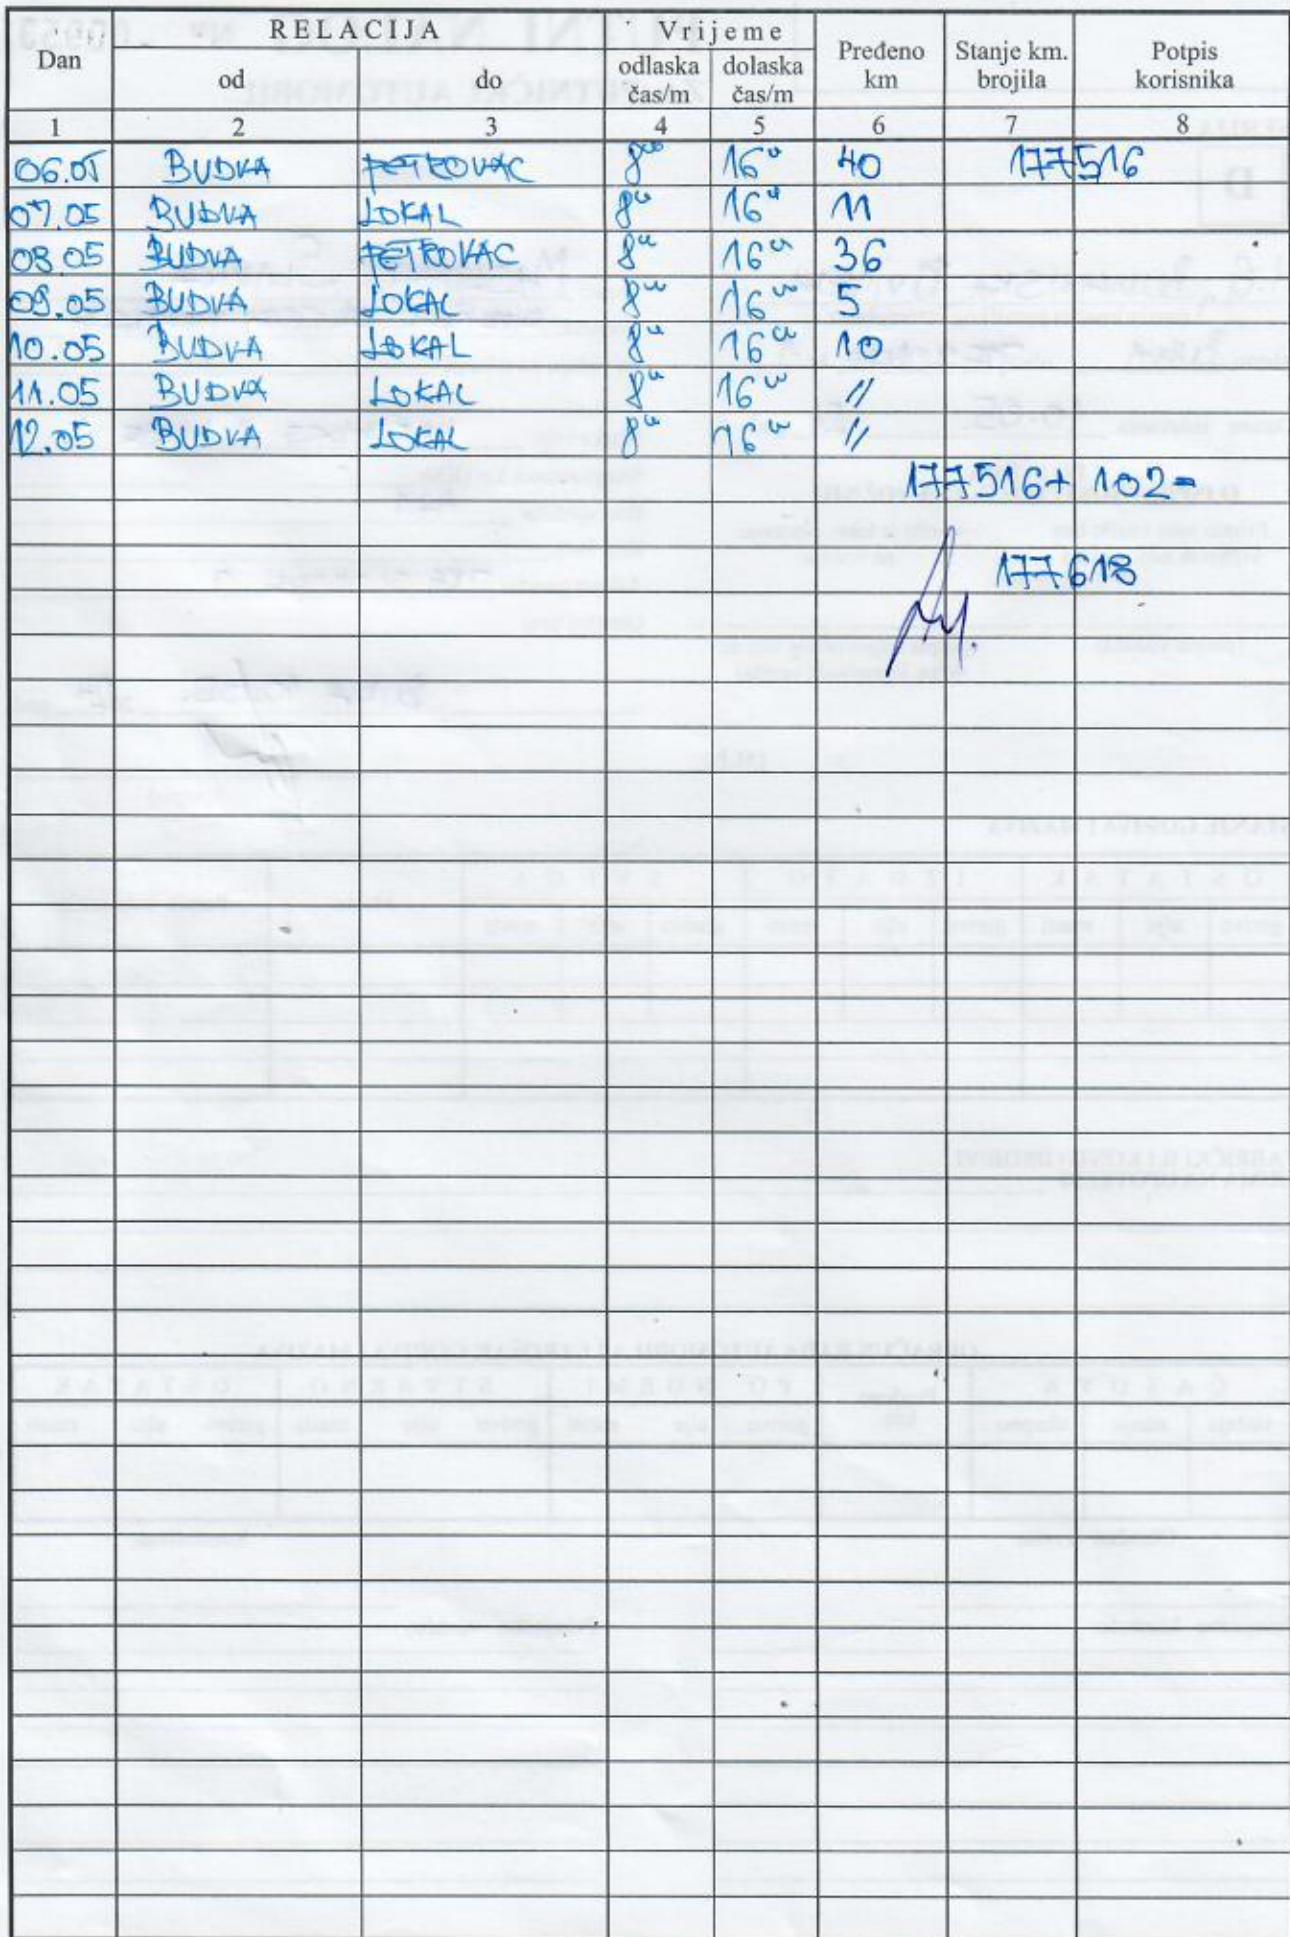 RELACIJA Vrijeme
Dan od do odlaska čas/m dolaska čas/m Pređeno km Stanje km. brojila Potpis korisnika
1 2 3 4 5 6 7 8
06.05 BUDVA PETROVAC 8⁰⁰ 16⁰⁰ 40 177516
07.05 BUDVA LOKAL 8⁰⁰ 16⁰⁰ 11
08.05 BUDVA PETROVAC 8⁰⁰ 16⁰⁰ 36
09.05 BUDVA LOKAL 8⁰⁰ 16⁰⁰ 5
10.05 BUDVA LOKAL 8⁰⁰ 16⁰⁰ 10
11.05 BUDVA LOKAL 8⁰⁰ 16⁰⁰ //
12.05 BUDVA LOKAL 8⁰⁰ 16⁰⁰ //
177516+102=
177618